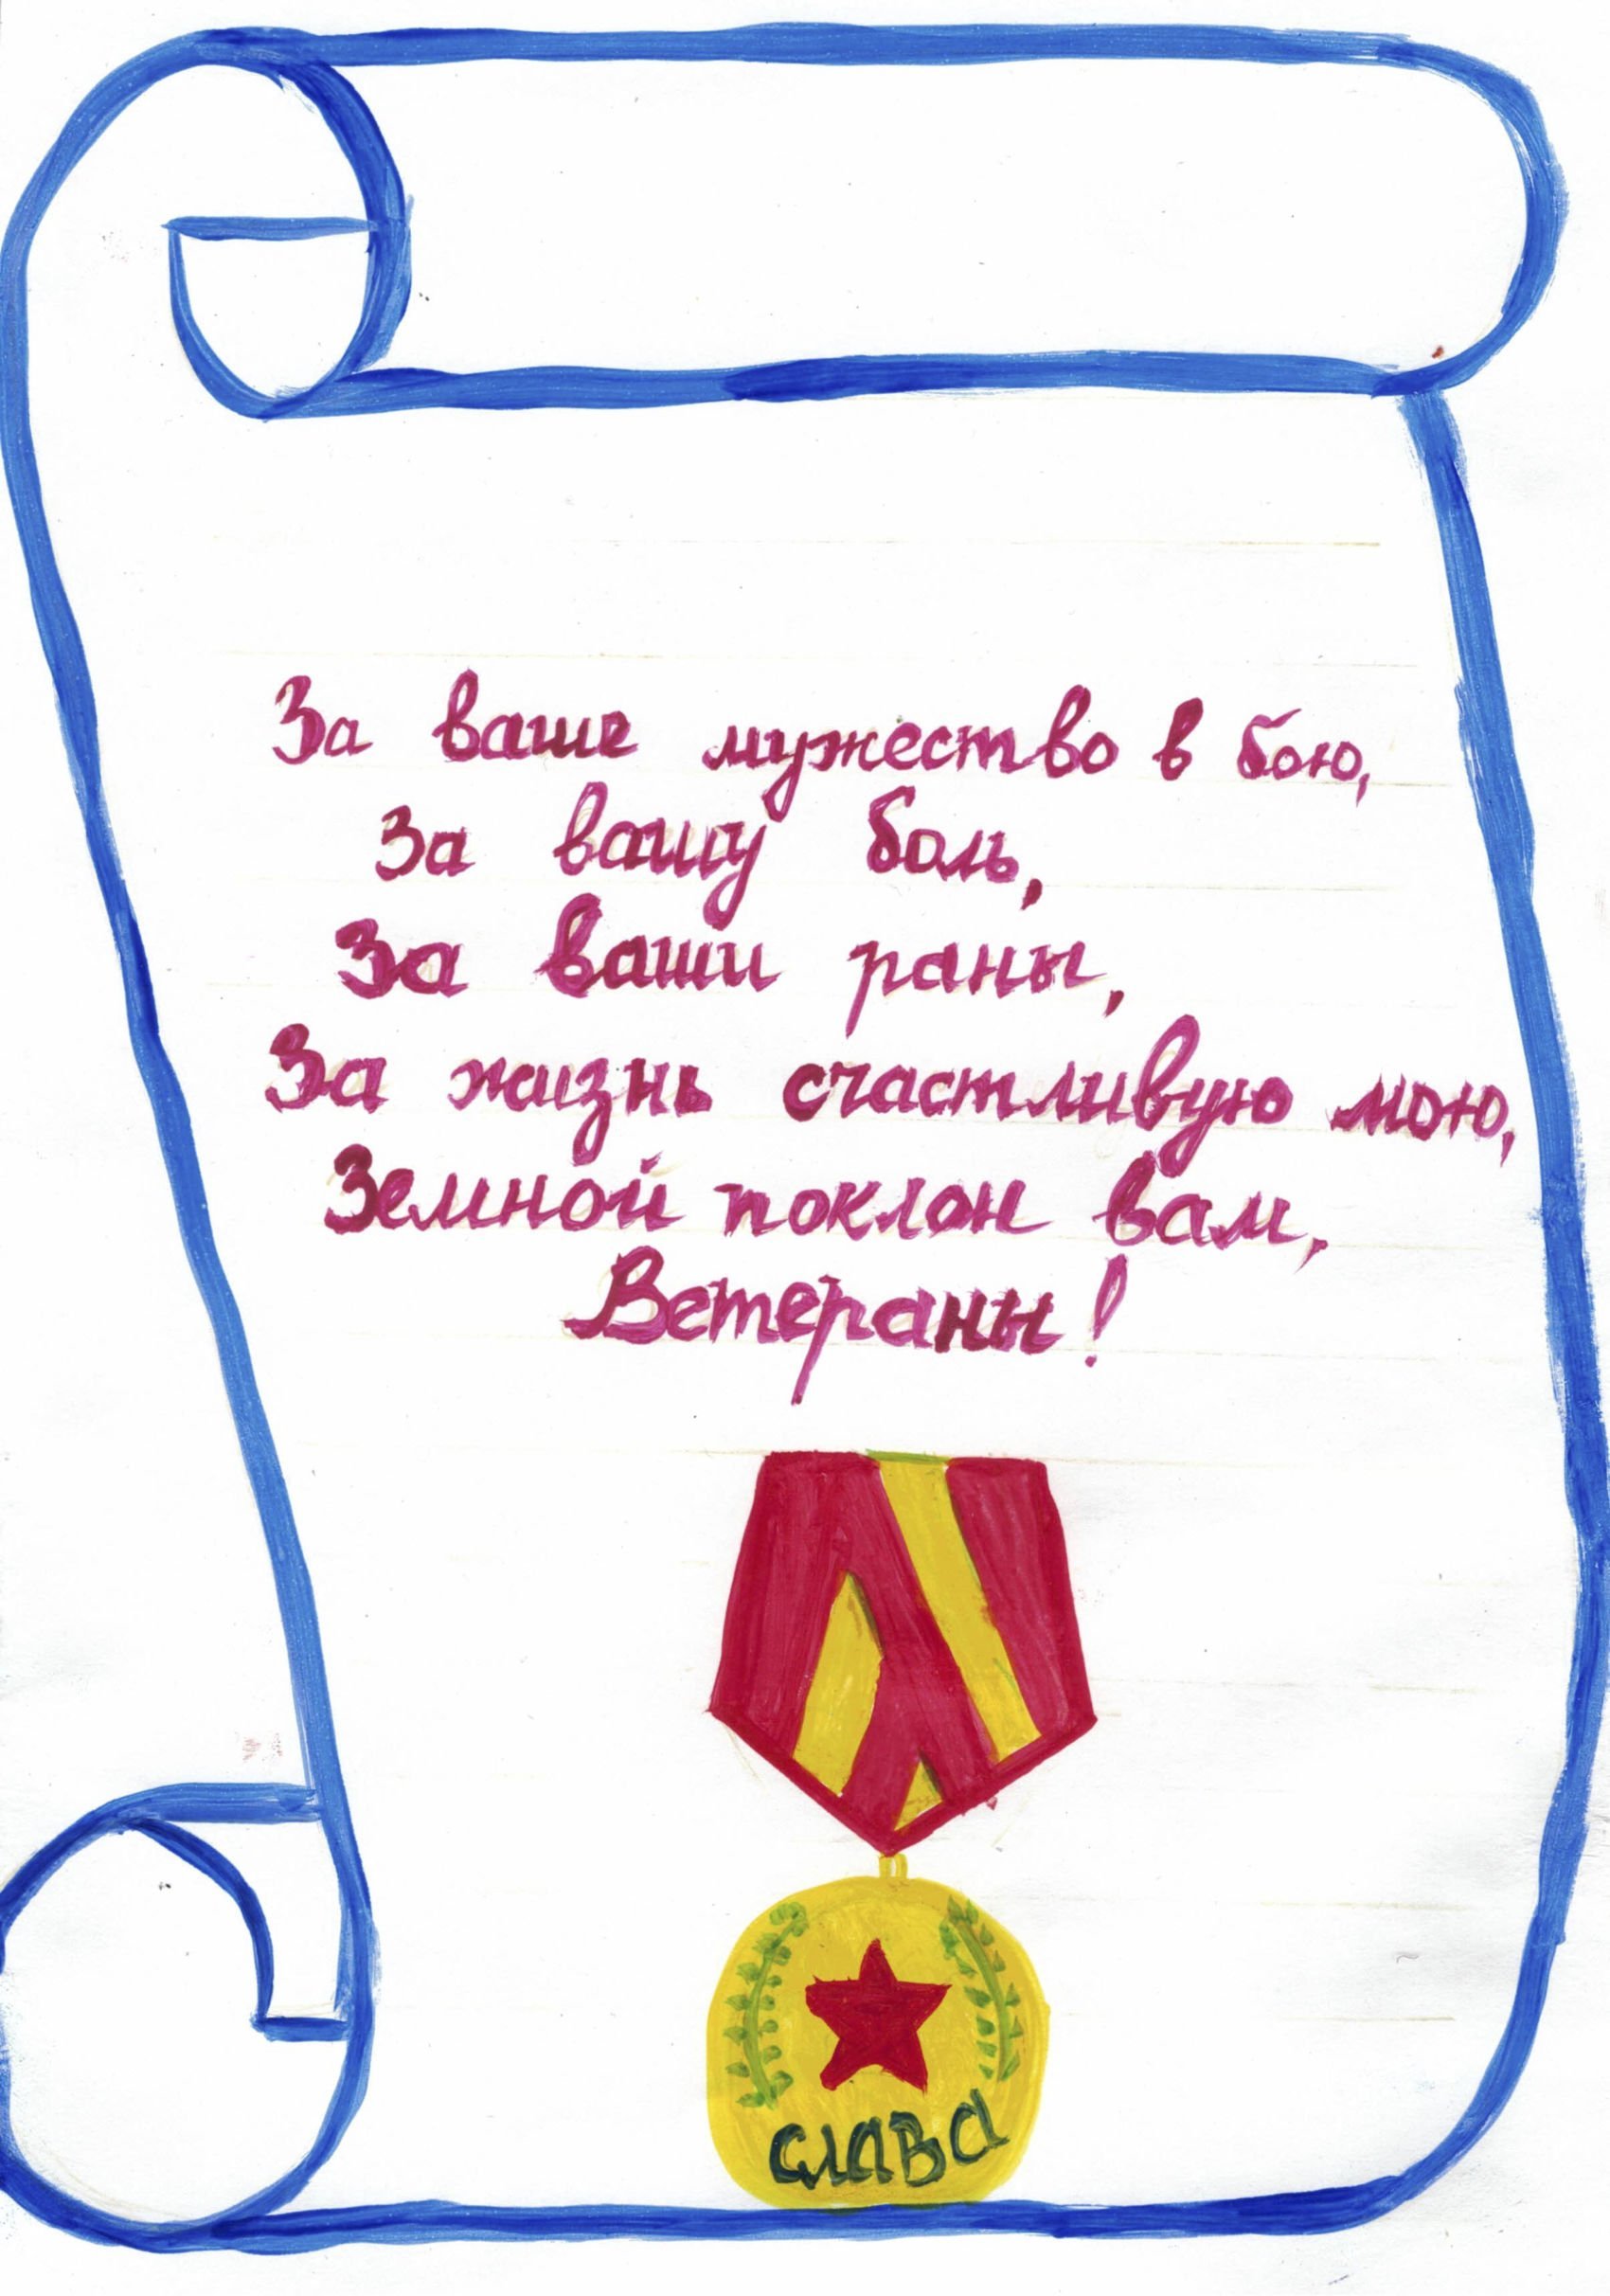 За ваше мужество в бою,
За вашу боль,
За ваши раны,
За жизнь счастливую мою,
Земной поклон вам,
Ветераны!
СЛАВА